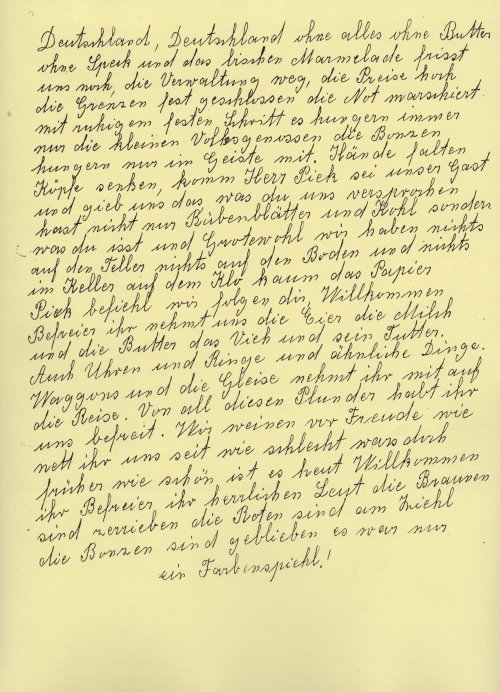 Deutschland, Deutschland ohne alles ohne Butter
ohne Speck und das bischen Marmelade frisst
uns noch, die Verwaltung weg, die Preise hoch
die Grenzen fest geschlossen die Not marschiert
mit ruhigem festen Schritt es hungern immer
nur die kleinen Volksgenossen die Bonzen
hungern nur im Geiste mit. Hände falten
Köpfe senken, komm Herr Piek sei unser Gast
und gieb uns das was du uns versprochen
hast nicht nur Rübenblätter und Kohl sondern
was du isst und Grotewohl wir haben nichts
auf den Teller nichts auf den Boden und nichts
im Keller auf dem Klo kaum das Papier
Piek befiehl wir folgen dir, Willkommen
Befreier ihr nehmt uns die Eier die Milch
und die Butter das Vieh und sein Futter.
Auch Uhren und Ringe und ähnliche Dinge.
Waggons und die Gleise nehmt ihr mit auf
die Reise. Von all diesen Plunder habt ihr
uns befreit. Wir weinen vor Freude wie
nett ihr uns seit wie schlecht wars doch
früher wie schön ist es heut Willkommen
ihr Befreier ihr herrlichen Leut die Braunen
sind zerrieben die Roten sind am Ziehl
die Bonzen sind geblieben es war nur
ein Farbenspiehl!